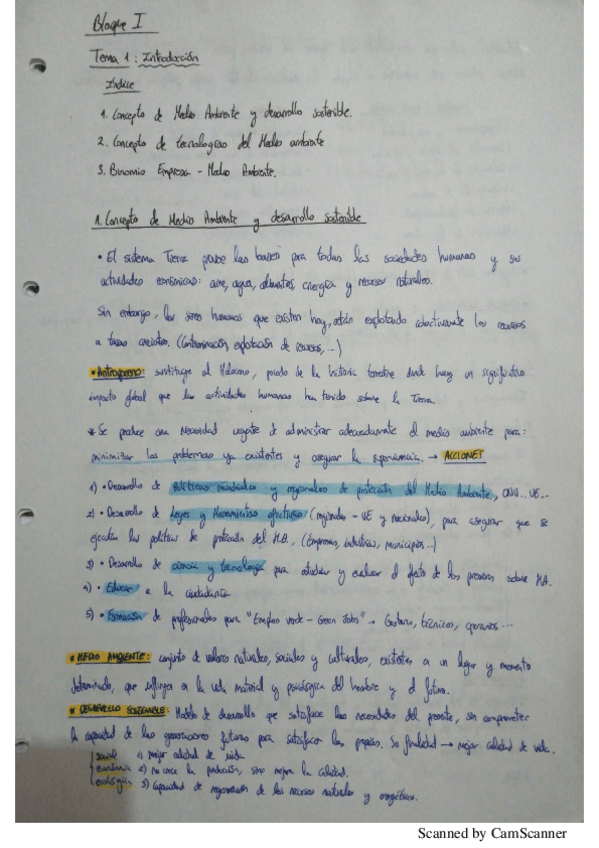 Bloque I
Tema 1: Introducción
Índice
1. Concepto de Medio Ambiente y desarrollo sostenible.
2. Concepto de tecnologías del Medio ambiente
3. Binomio Empresa - Medio Ambiente.
1. Concepto de Medio Ambiente y desarrollo sostenible
• El sistema Tierra provee las bases para todas las sociedades humanas y sus
actividades económicas: aire, agua, alimentos, energía y recursos naturales.
Sin embargo, los seres humanos que existen hoy, están explotando colectivamente los recursos
a tasas crecientes. (Contaminación, explotación de recursos, ...)
• Antropoceno: sustituye al Holoceno, periodo de la historia terrestre donde hay un significativo
impacto global que las actividades humanas ha tenido sobre la Tierra.
* Se produce una necesidad urgente de administrar adecuadamente el medio ambiente para:
minimizar los problemas ya existentes y asegurar la supervivencia. → ACCIONES
1) • Desarrollo de Políticas mundiales y regionales de protección del Medio Ambiente., ONU.. UE...
2) • Desarrollo de Leyes y Herramientas efectivas (regionales - UE y nacionales), para asegurar que se
ejecutan las políticas de protección del M.A., (Empresas, industrias, municipios...)
3) • Desarrollo de ciencia y tecnología para estudiar y evaluar el efecto de los procesos sobre M.A.
4) • Educar a la ciudadanía
5) • Formación de profesionales para "Empleo verde - Green Jobs" → Gestores, técnicos, operarios...
* MEDIO AMBIENTE: conjunto de valores naturales, sociales y culturales, existentes a un lugar y momento
determinado, que influyen a la vida material y psicológica del hombre y el futuro.
• DESARROLLO SOSTENIBLE: Modelo de desarrollo que satisface las necesidades del presente, sin comprometer
la capacidad de las generaciones futuras para satisfacer las propias. Su finalidad → mejor calidad de vida.
social 1) mejor calidad de vida
económica 2) no crece la producción, sino mejora la calidad.
ecológica 3) Capacidad de regeneración de los recursos naturales y energéticos.
Scanned by CamScanner